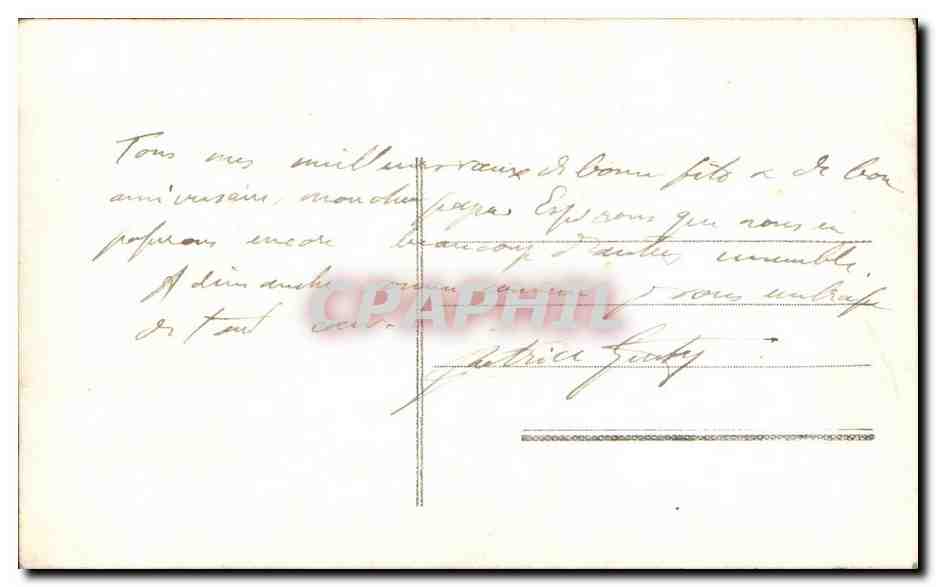 Tous mes meilleurs vœux de bonne fête & de bon
anniversaire, mon cher papa. Espérons que nous en
passerons encore beaucoup d'autres ensemble.
A dimanche je vous embrasse
de tout cœur.
CPAPHIL